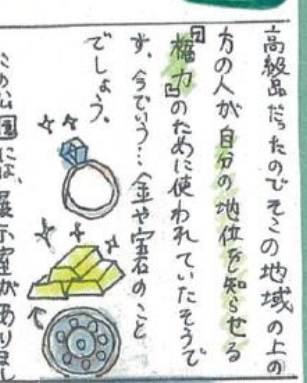 高級品だったのでそこの地域の上の
方の人が自分の地位を知らせる
『権力』のために使われていたそうで
す。今でいう…金や宝石のこと
でしょう。
には、展示室がありまし